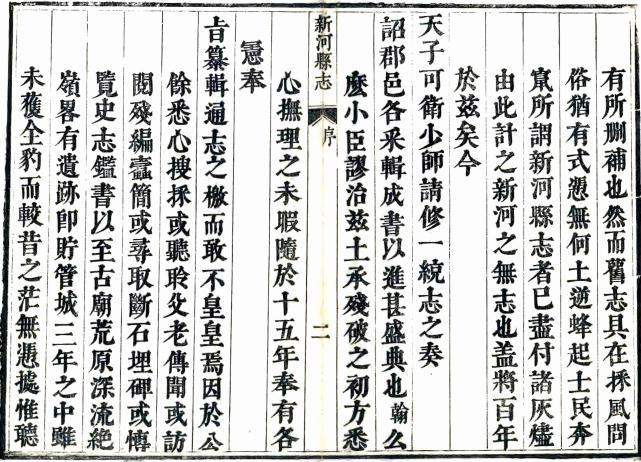 有所刪補也然而舊志具在採風問
俗猶有式憑無何土逆蜂起士民奔
竄所謂新河縣志者已盡付諸灰燼
由此計之新河之無志也蓋將百年
於茲矣今
天子可衛少師請修一統志之奏
詔郡邑各采輯成書以進甚盛典也翰么
麼小臣謬治茲土承殘破之初方悉
心撫理之未暇隨於十五年奉有各
新河縣志
序
二
憲奉
旨纂輯通志之檄而敢不皇皇焉因於公
餘悉心搜採或聽聆父老傳聞或訪
閱殘編蠹簡或尋取斷石埋碑或博
覽史志鑑書以至古廟荒原深流絕
嶺畧有遺跡即貯管城三年之中雖
未獲全豹而較昔之茫無憑據惟聽